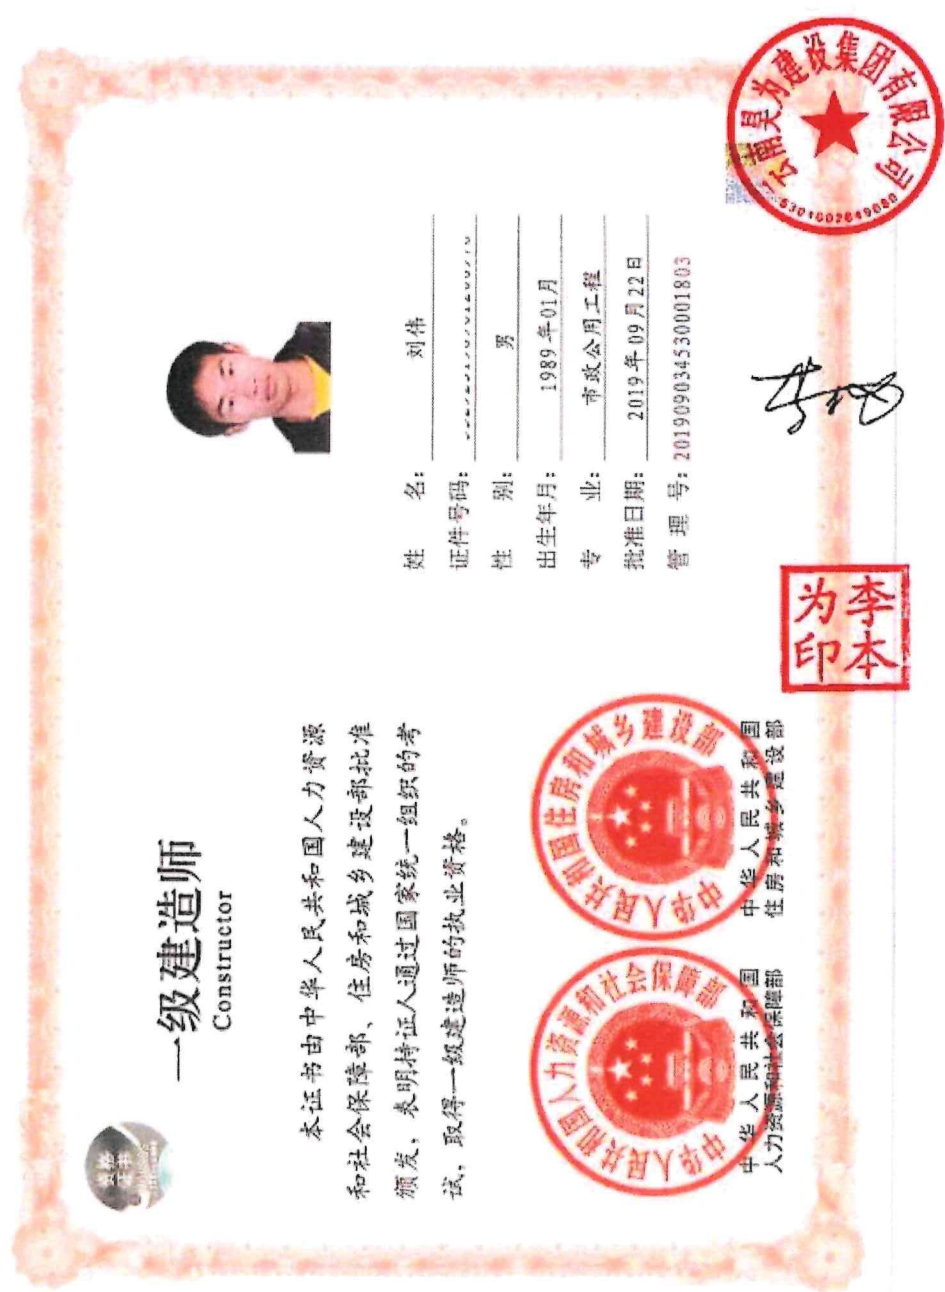 资格
证书
一级建造师
Constructor
本证书由中华人民共和国人力资源
和社会保障部、住房和城乡建设部批准
颁发，表明持证人通过国家统一组织的考
试，取得一级建造师的执业资格。
中华人民共和国人力资源和社会保障部
中华人民共和国住房和城乡建设部
中华人民共和国
人力资源和社会保障部
中华人民共和国
住房和城乡建设部
姓名：刘伟
证件号码：
性别：男
出生年月：1989年01月
专业：市政公用工程
批准日期：2019年09月22日
管理号：201909034530001803
李本
为印
云南昊为建设集团有限公司